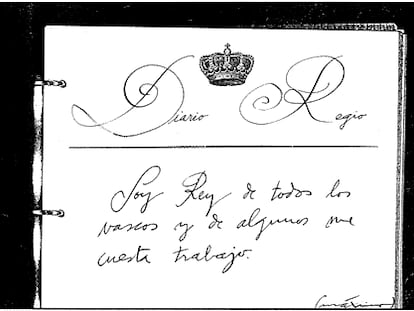 Diario Regio
Soy Rey de todos los
vascos y de algunos me
cuesta trabajo.
(máximo)